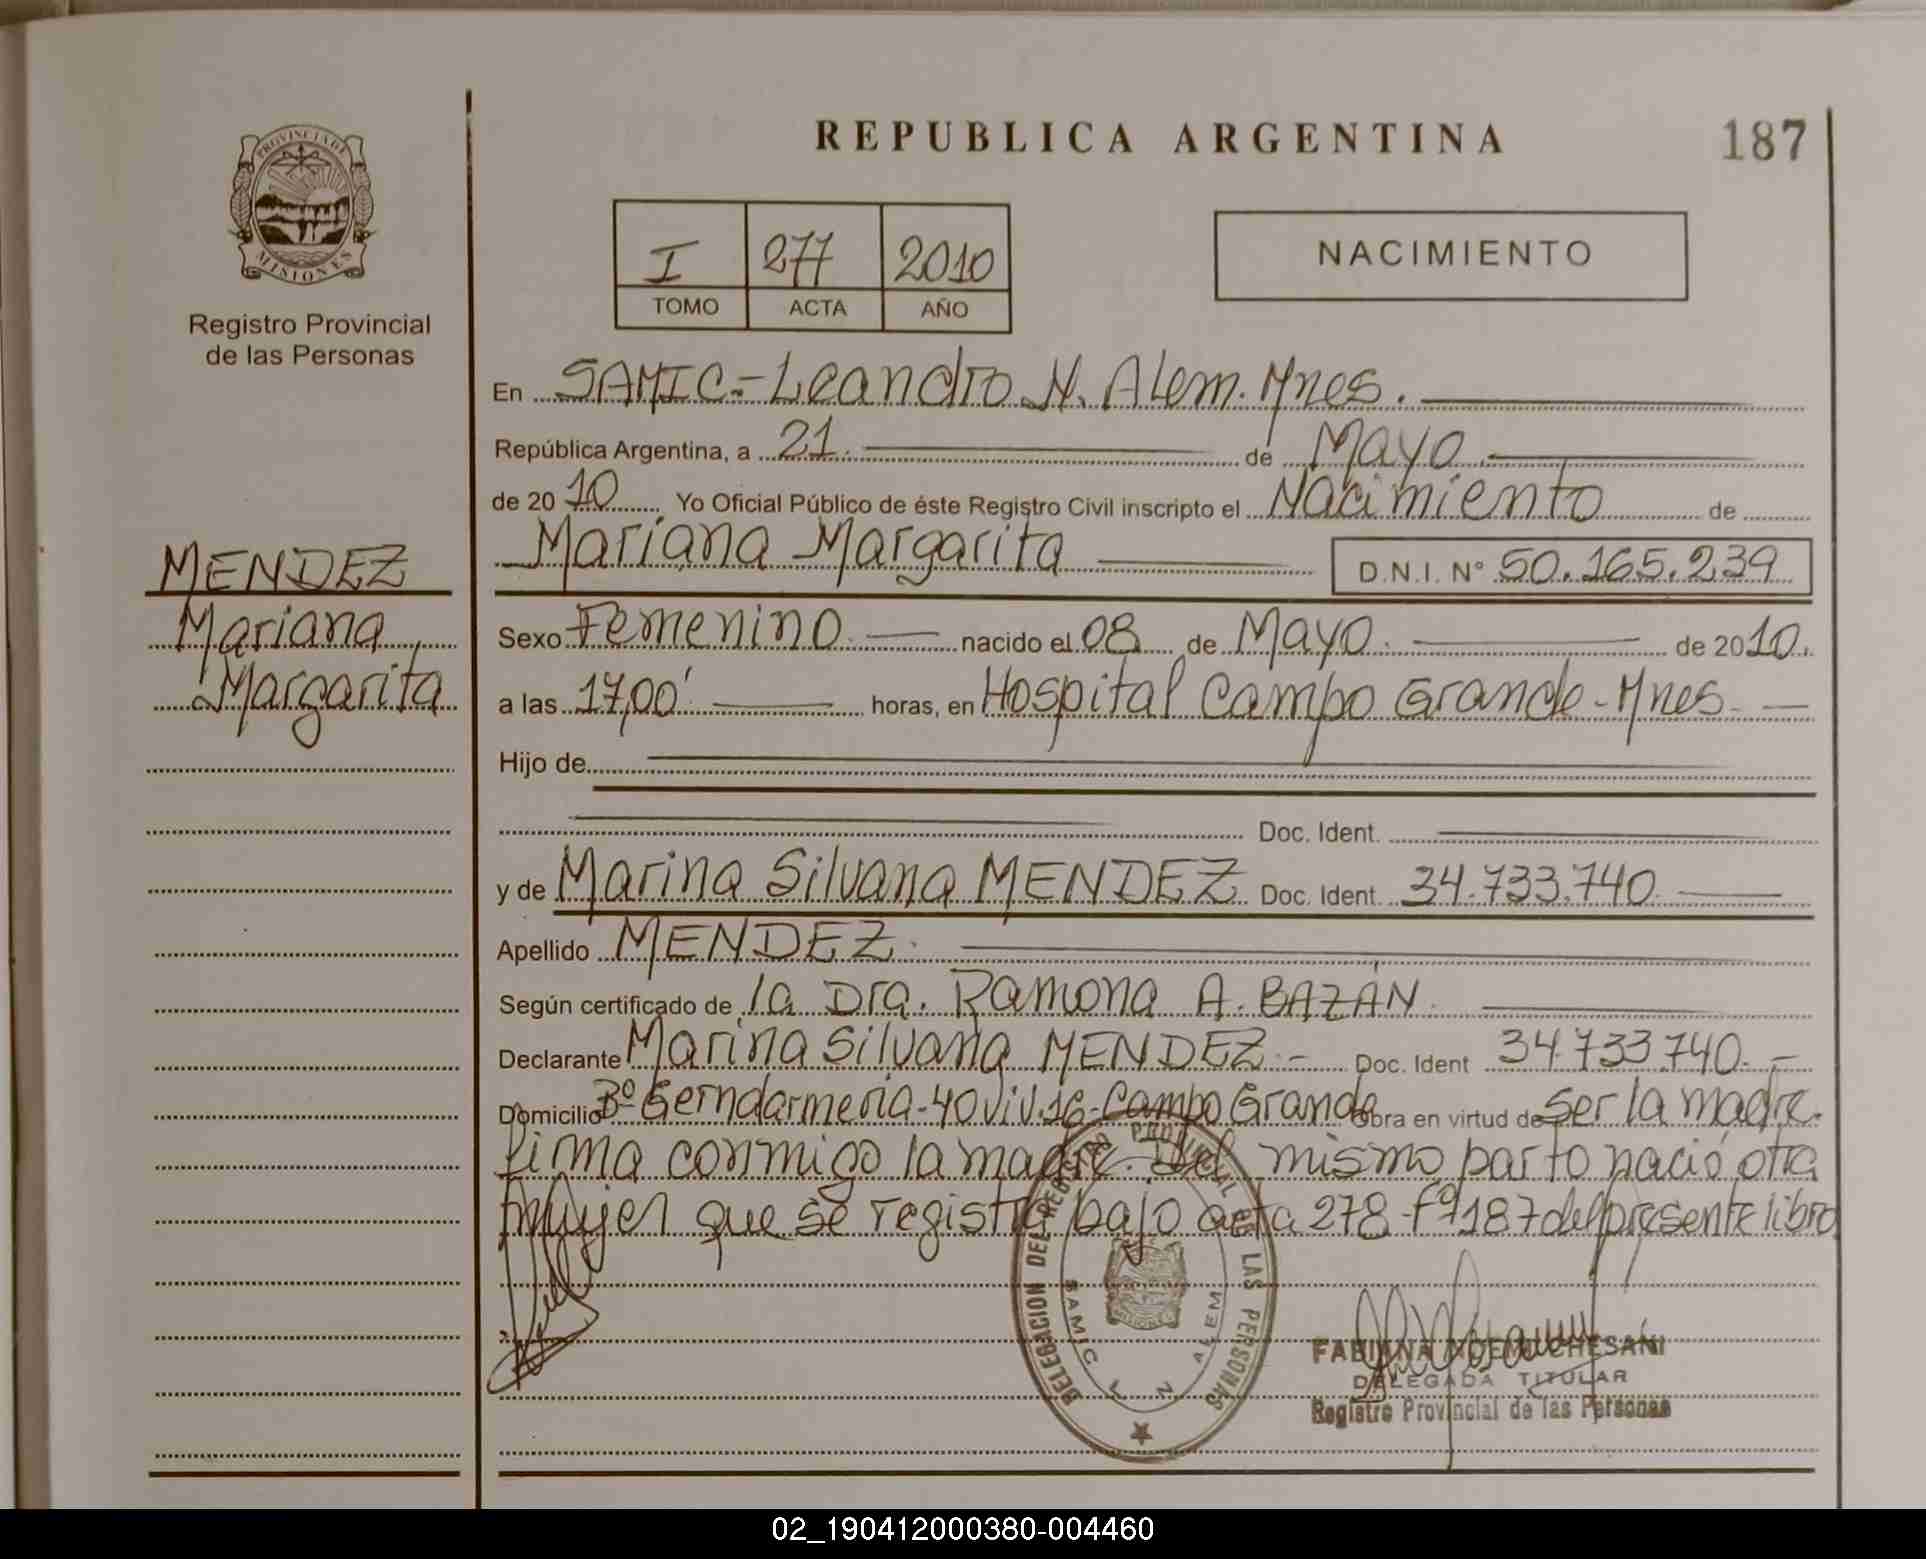 REPUBLICA ARGENTINA
187
PROVINCIA DE
MISIONES
Registro Provincial
de las Personas
I 277 2010
TOMO ACTA AÑO
NACIMIENTO
En SAMIC.-Leandro N. Alem. Mnes.
República Argentina, a 21. de Mayo
de 2010 Yo Oficial Público de éste Registro Civil inscripto el Nacimiento de
Mariana Margarita D.N.I. Nº 50.165.239
MENDEZ
Mariana
Margarita
Sexo Femenino. nacido el 08 de Mayo. de 2010.
a las 17,00' horas, en Hospital Campo Grande - Mnes.
Hijo de
Doc. Ident.
y de Marina Silvana MENDEZ Doc. Ident. 34.733.740.
Apellido MENDEZ.
Según certificado de la Dra. Ramona A. BAZÁN.
Declarante Marina Silvana MENDEZ.- Doc. Ident 34.733.740.-
Domicilio Bº Gerndarmeria-40 Viv.16-Campo Grande Obra en virtud de Ser la madre.
Firma conmigo la madre. Del mismo parto nació otra
mujer que se registra bajo acta 278-fº187 del presente libro
DELEGACION DEL REGISTRO PROVINCIAL DE LAS PERSONAS
SAMIC L N ALEM
FABIANA NOEMI CHESANI
DELEGADA TITULAR
Registro Provincial de las Personas
02_190412000380-004460